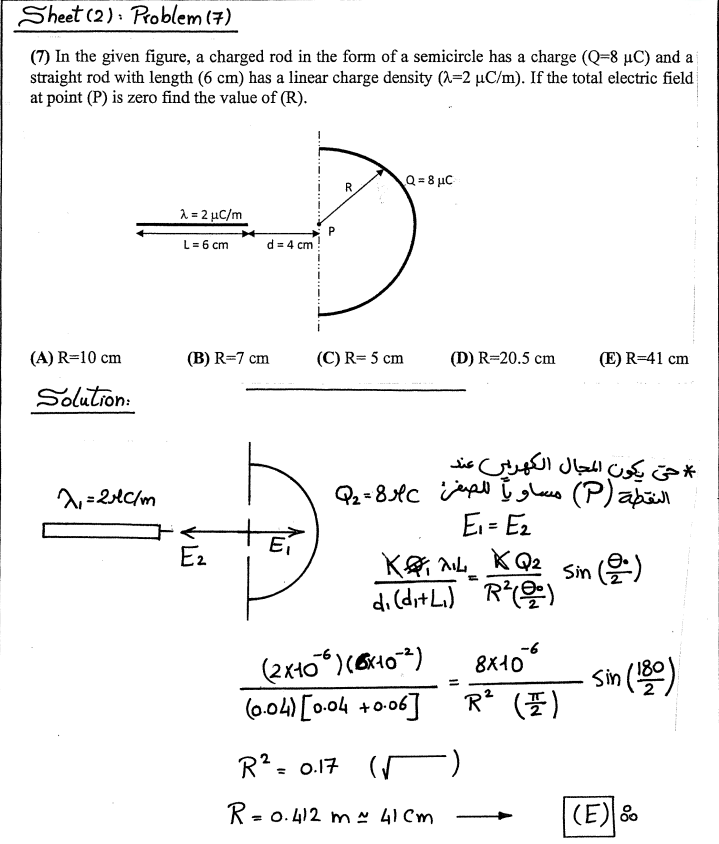 Sheet (2) : Problem (7)
(7) In the given figure, a charged rod in the form of a semicircle has a charge (Q=8 μC) and a
straight rod with length (6 cm) has a linear charge density (λ=2 μC/m). If the total electric field
at point (P) is zero find the value of (R).
R
Q = 8 μC
λ = 2 μC/m
P
L = 6 cm
d = 4 cm
(A) R=10 cm (B) R=7 cm (C) R= 5 cm (D) R=20.5 cm (E) R=41 cm
Solution:
* حتى يكون المجال الكهربي عند
النقطة (P) مساوياً للصفر:
λ₁=2μC/m
Q₂=8μC
E₂
E₁
E₁ = E₂
K λ₁L₁ / d₁(d₁+L₁) = K Q₂ / R²(θ₀/2) Sin (θ₀/2)
(2×10⁻⁶)(6×10⁻²) / (0.04)[0.04+0.06] = 8×10⁻⁶ / R² (π/2) Sin (180/2)
R² = 0.17 (√ )
R = 0.412 m ≃ 41 Cm → (E)